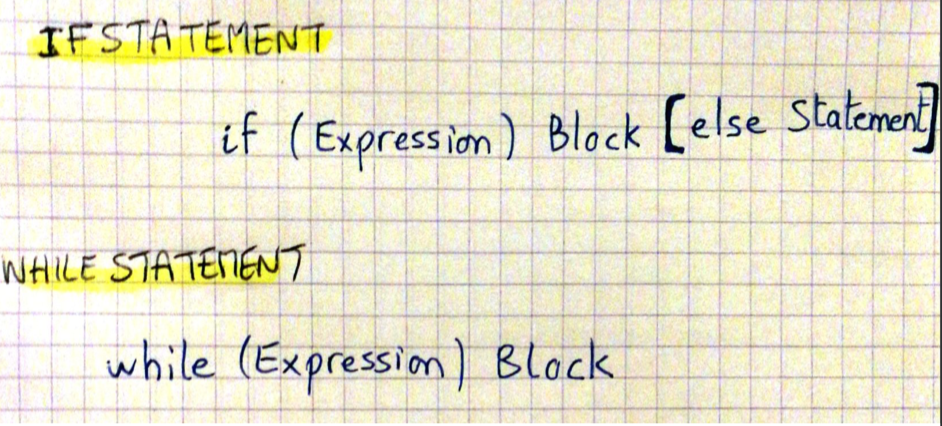 IF STATEMENT
if (Expression) Block [else Statement]
WHILE STATEMENT
while (Expression) Block